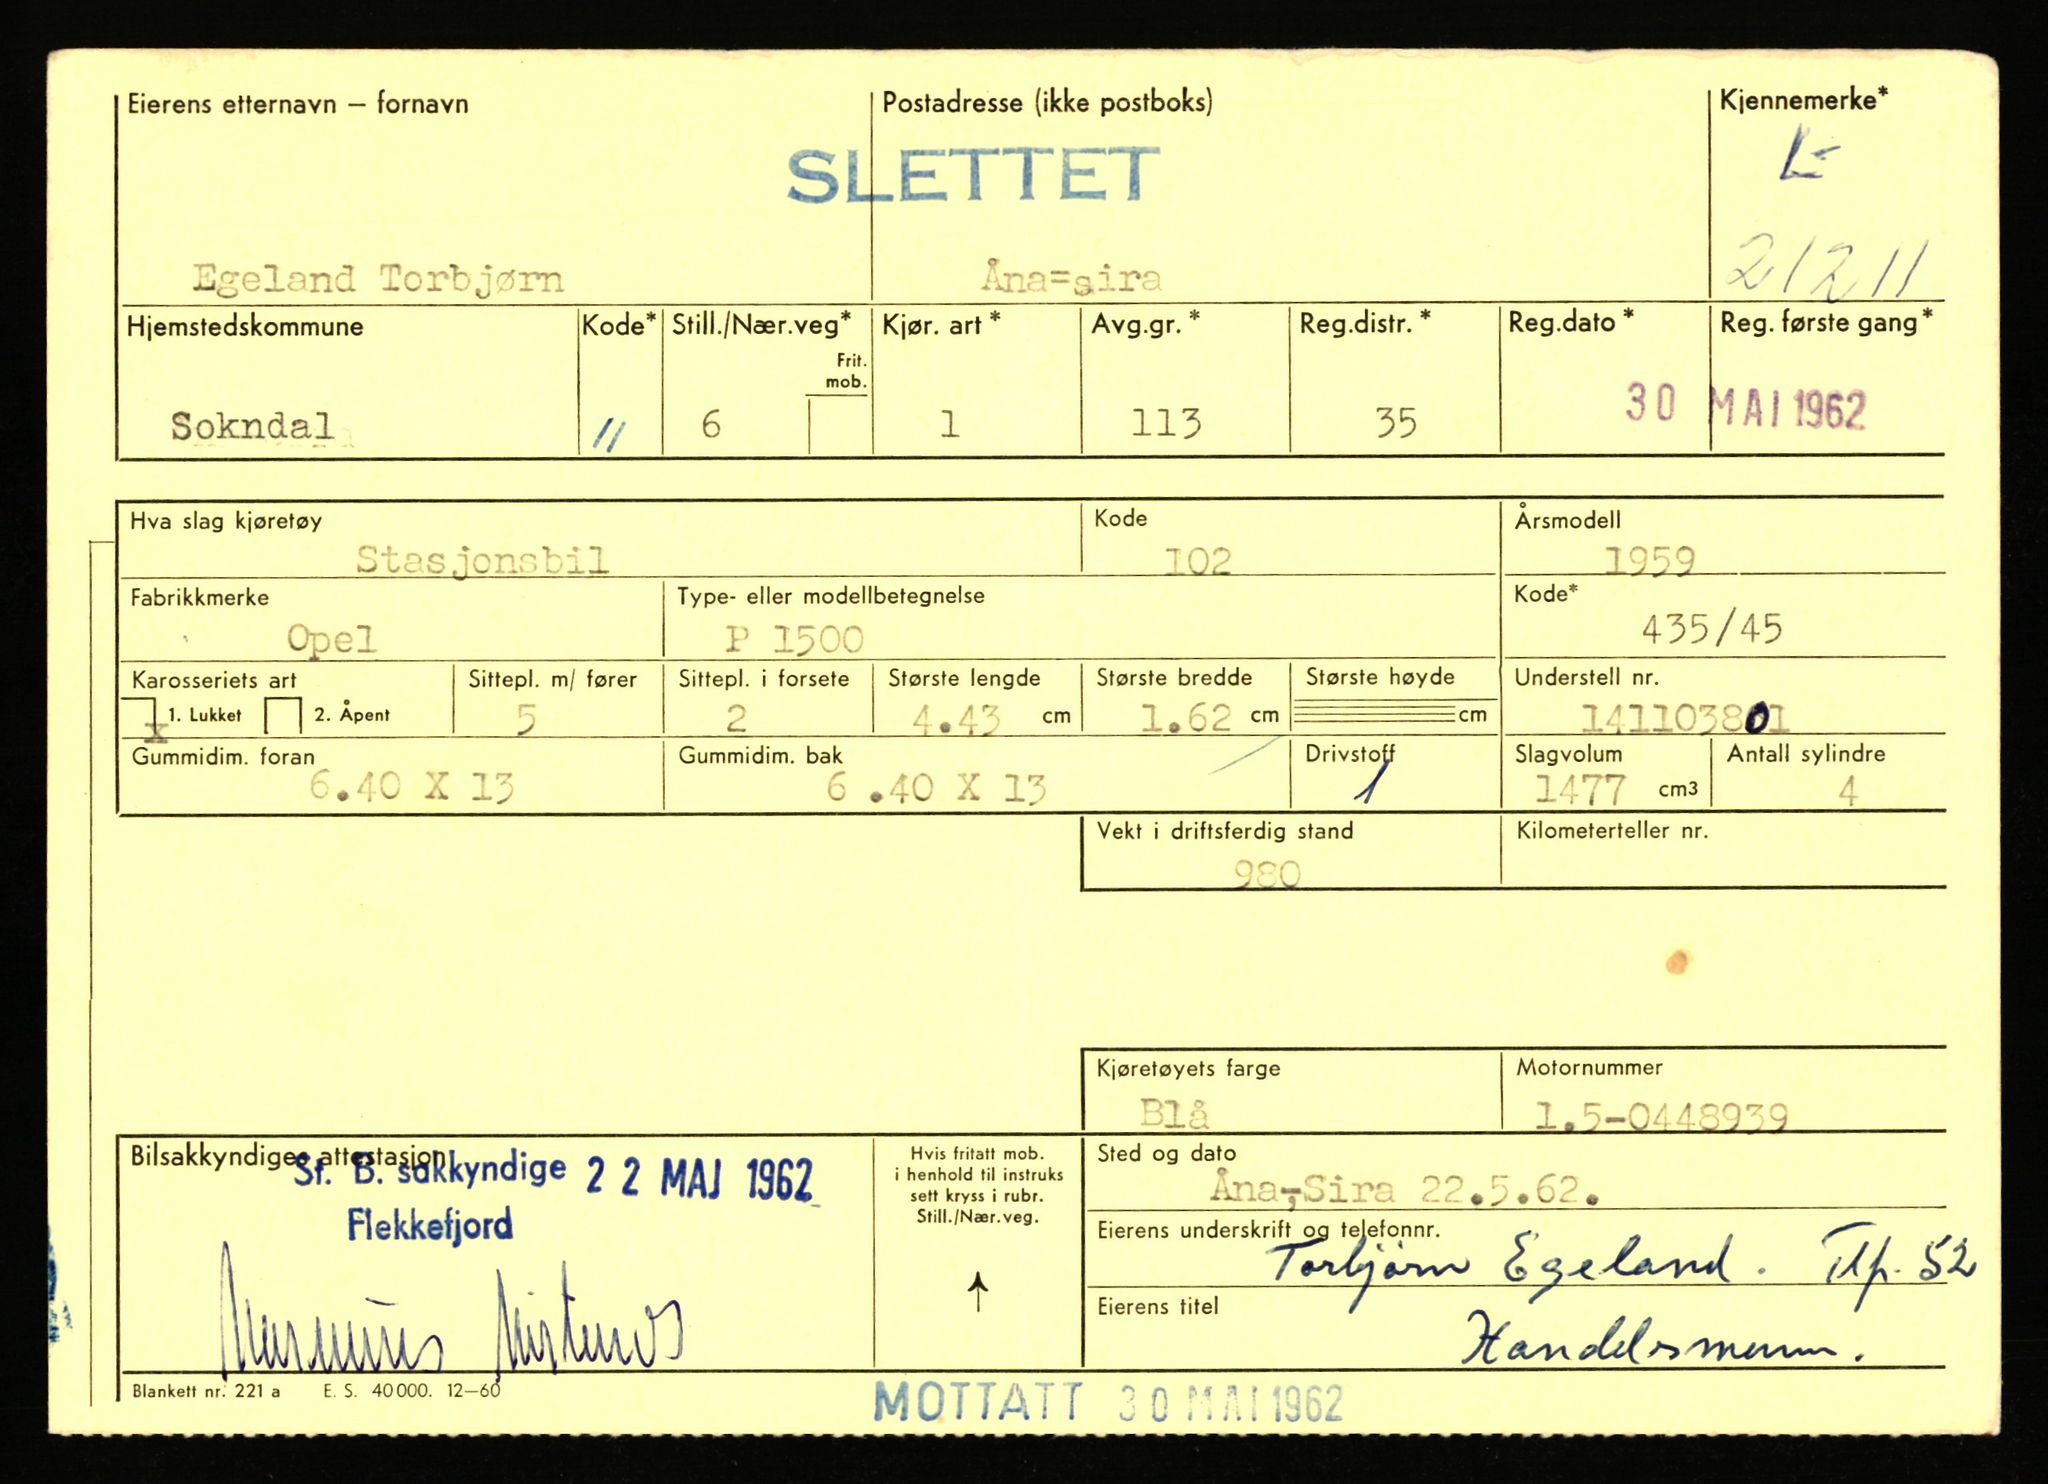 Eierens etternavn – fornavn
Egeland Torbjørn
Postadresse (ikke postboks)
SLETTET
Åna=sira
Kjennemerke*
L-
21211
Hjemstedskommune
Sokndal
Kode*
11
Still./Nær.veg*
Frit.
mob.
6
Kjør. art *
1
Avg.gr. *
113
Reg.distr. *
35
Reg.dato *
Reg. første gang *
30 MAI 1962
Hva slag kjøretøy
Stasjonsbil
Kode
102
Årsmodell
1959
Fabrikkmerke
Opel
Type- eller modellbetegnelse
P 1500
Kode*
435/45
Karosseriets art
x 1. Lukket 2. Åpent
Sittepl. m/ fører
5
Sittepl. i forsete
2
Største lengde
4.43 cm
Største bredde
1.62 cm
Største høyde
cm
Understell nr.
141103801
Gummidim. foran
6.40 X 13
Gummidim. bak
6 .40 X 13
Drivstoff
1
Slagvolum
1477 cm3
Antall sylindre
4
Vekt i driftsferdig stand
980
Kilometerteller nr.
Kjøretøyets farge
Blå
Motornummer
1.5-0448939
Bilsakkyndiges attestasjon
St. B. sakkyndige 22 MAI 1962
Flekkefjord
Hvis fritatt mob.
i henhold til instruks
sett kryss i rubr.
Still./Nær.veg.
Sted og dato
Åna-,Sira 22.5.62.
Eierens underskrift og telefonnr.
Torbjørn Egeland. Tlf. 52
Eierens titel
Handelsmann.
Blankett nr. 221 a E. S. 40000. 12–60
MOTTATT 30 MAI 1962